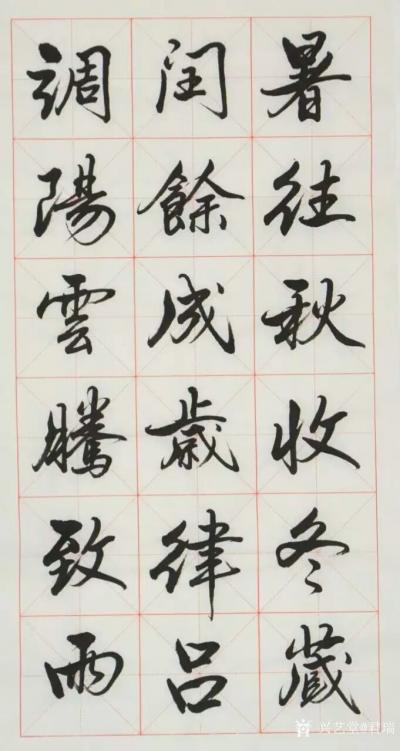 暑往秋收冬藏
闰餘成歲律吕
調陽雲騰致雨
兴艺堂@君瑞